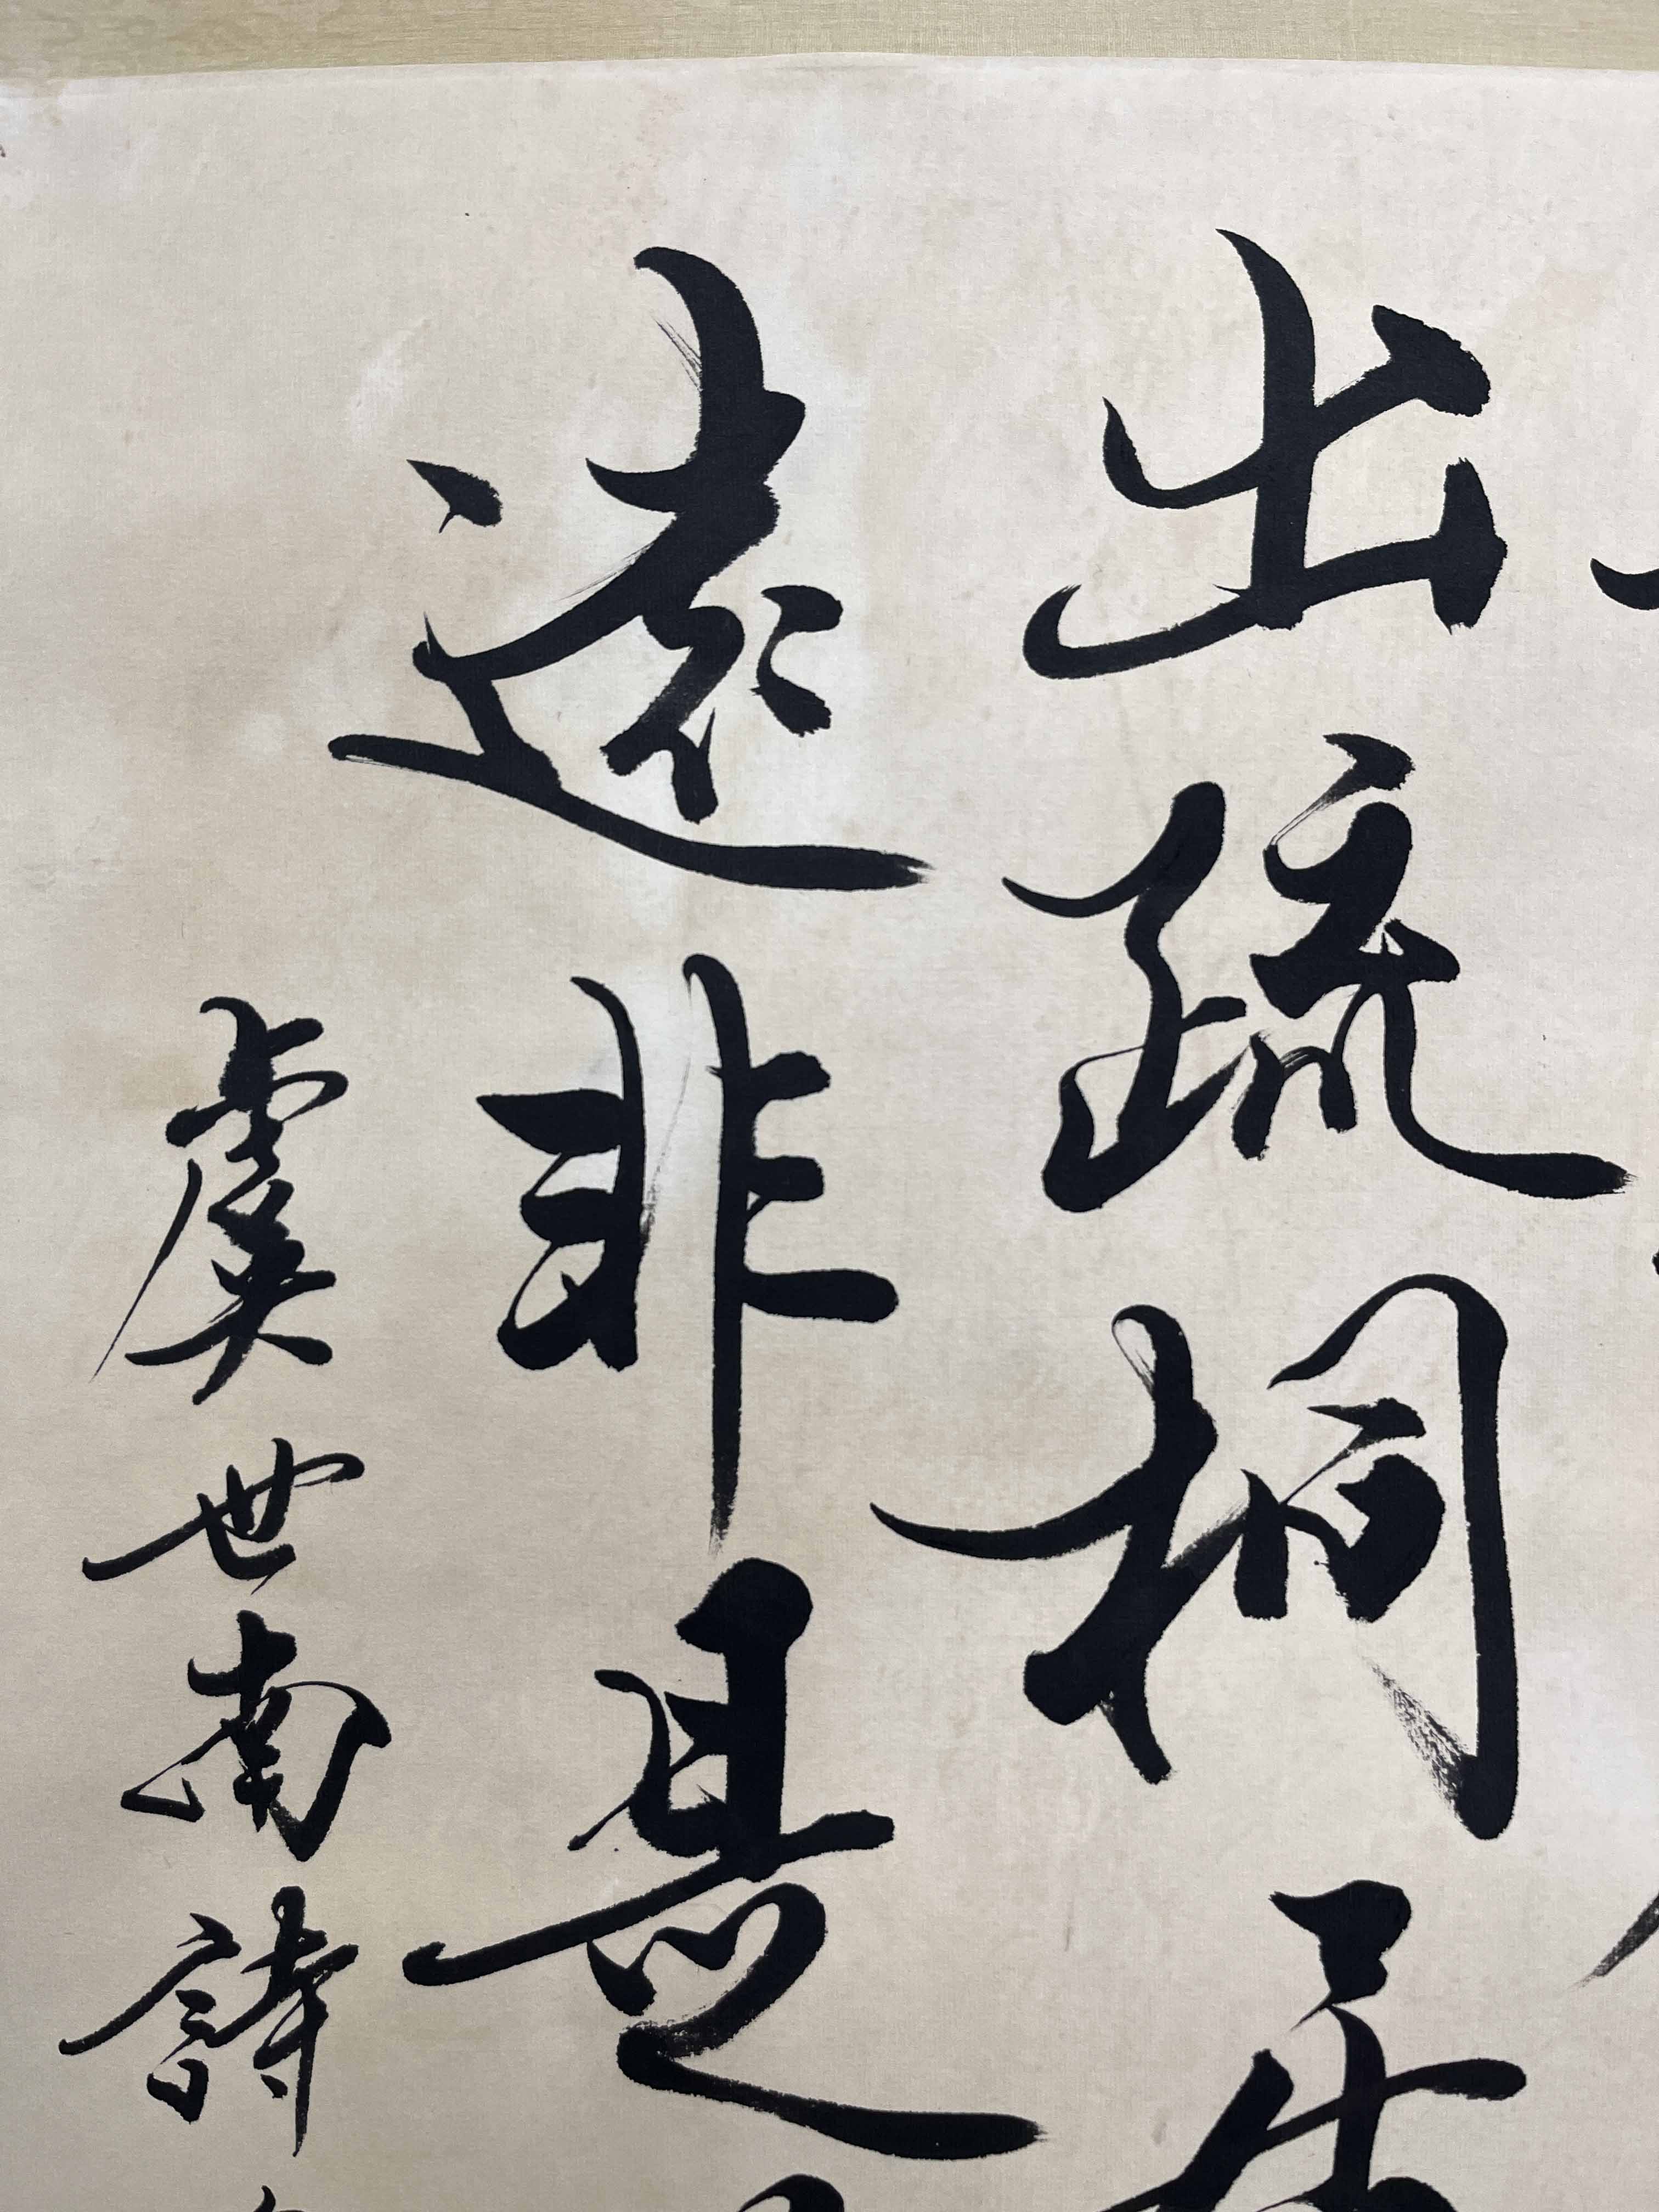 出疏桐居
遠非是
虞世南詩